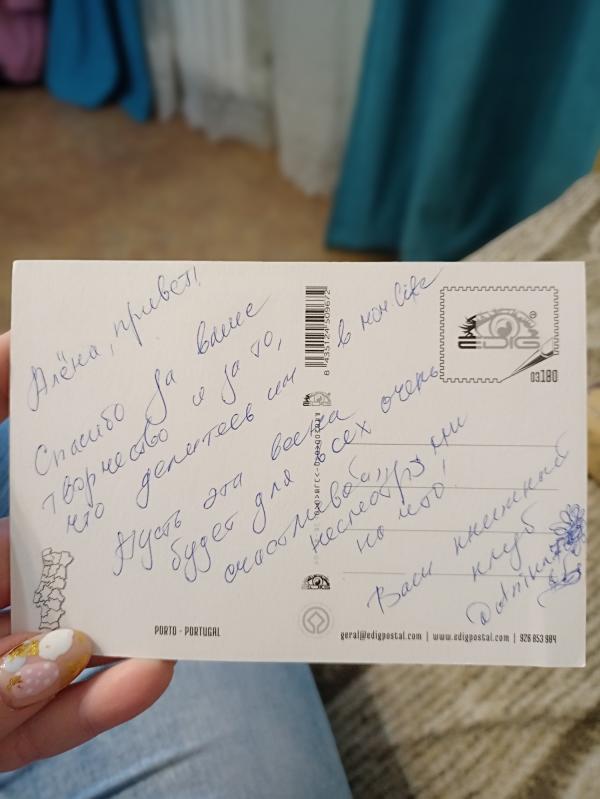 Алёна, привет!
Спасибо за ваше
творчество и за то,
что делитесь им в
Пусть эта весна
будет для всех очень
счастливой,
несмотря ни
на что!
Ваш книжный
клуб
8 435124 509672
EDIG
03180
PORTO - PORTUGAL
geral@edigpostal.com | www.edigpostal.com | 926 853 984